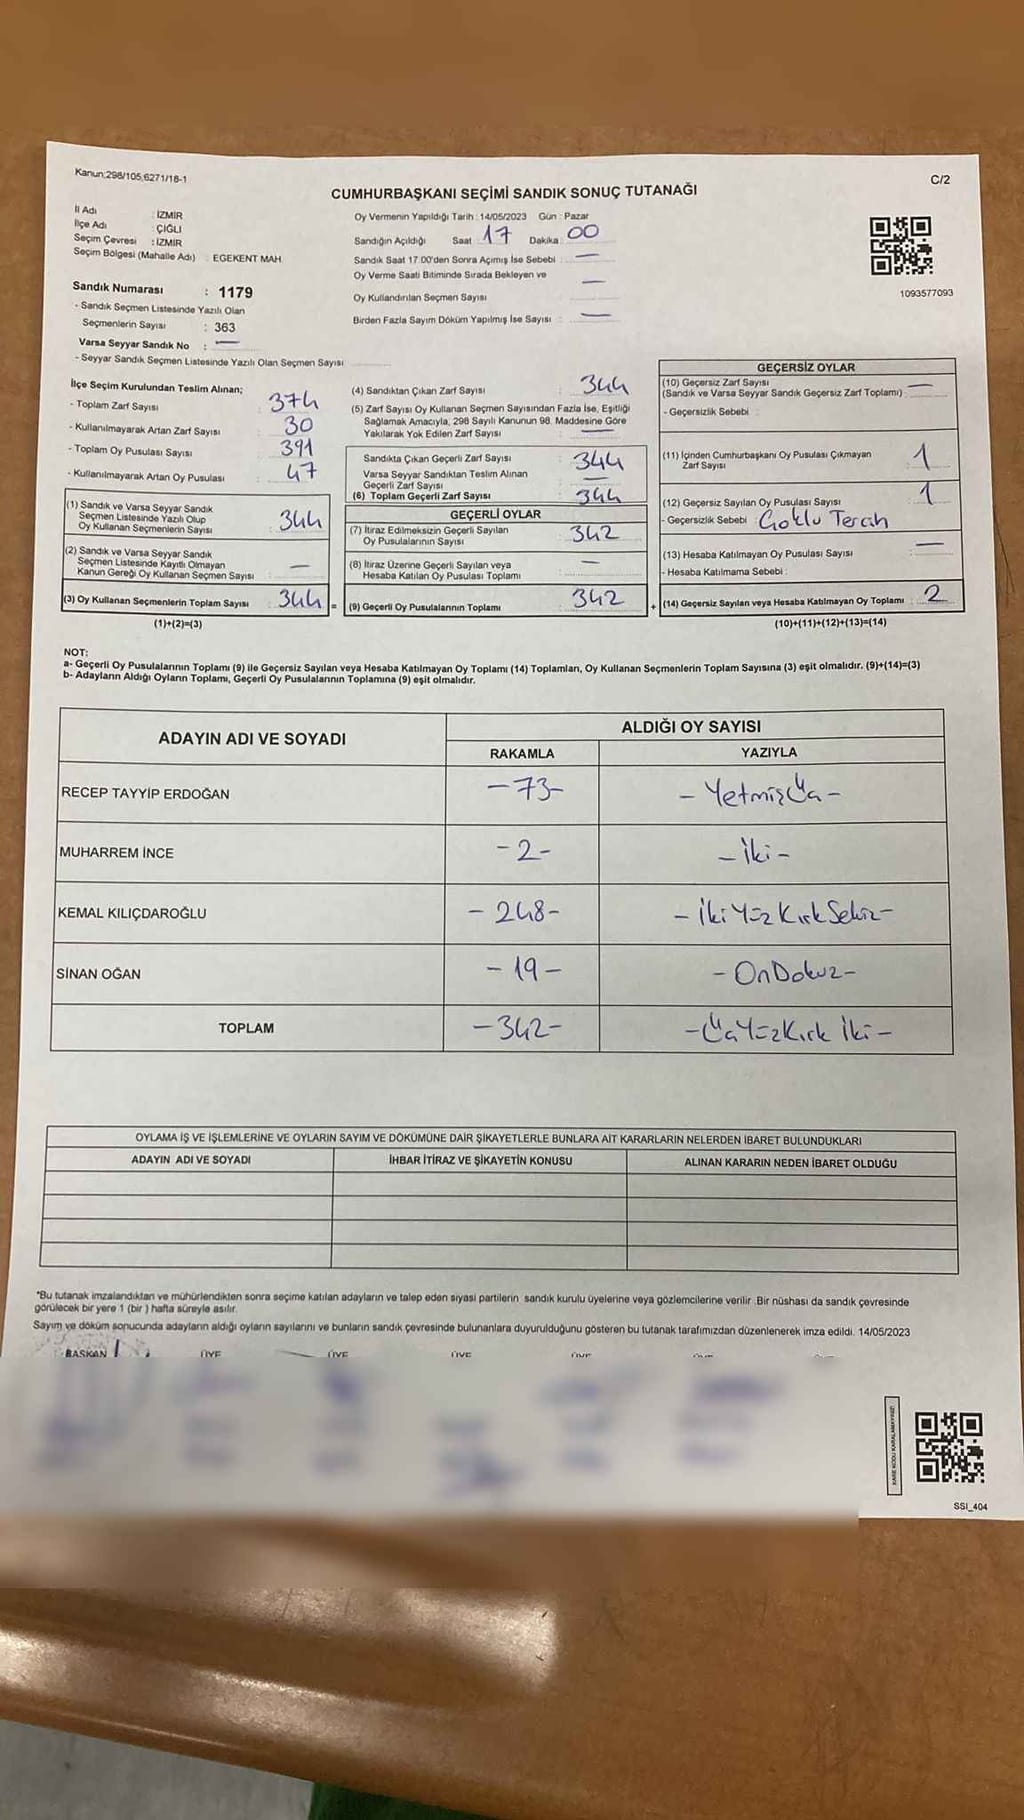 Kanun:298/105,6271/18-1
C/2
CUMHURBAŞKANI SEÇİMİ SANDIK SONUÇ TUTANAĞI
İl Adı : İZMİR
İlçe Adı : ÇİĞLİ
Seçim Çevresi : İZMİR
Seçim Bölgesi (Mahalle Adı) : EGEKENT MAH.
Sandık Numarası : 1179
- Sandık Seçmen Listesinde Yazılı Olan
Seçmenlerin Sayısı : 363
Varsa Seyyar Sandık No : —
- Seyyar Sandık Seçmen Listesinde Yazılı Olan Seçmen Sayısı
Oy Vermenin Yapıldığı Tarih : 14/05/2023 Gün : Pazar
Sandığın Açıldığı Saat : 17 Dakika : 00
Sandık Saat 17.00'den Sonra Açımış İse Sebebi : —
Oy Verme Saati Bitiminde Sırada Bekleyen ve —
Oy Kullandırılan Seçmen Sayısı
Birden Fazla Sayım Döküm Yapılmış İse Sayısı : —
1093577093
İlçe Seçim Kurulundan Teslim Alınan;
- Toplam Zarf Sayısı : 374
- Kullanılmayarak Artan Zarf Sayısı : 30
- Toplam Oy Pusulası Sayısı : 391
- Kullanılmayarak Artan Oy Pusulası : 47
(1) Sandık ve Varsa Seyyar Sandık
Seçmen Listesinde Yazılı Olup
Oy Kullanan Seçmenlerin Sayısı : 344
(2) Sandık ve Varsa Seyyar Sandık
Seçmen Listesinde Kayıtlı Olmayan
Kanun Gereği Oy Kullanan Seçmen Sayısı : —
(3) Oy Kullanan Seçmenlerin Toplam Sayısı : 344 =
(1)+(2)=(3)
(4) Sandıktan Çıkan Zarf Sayısı : 344
(5) Zarf Sayısı Oy Kullanan Seçmen Sayısından Fazla İse, Eşitliği
Sağlamak Amacıyla, 298 Sayılı Kanunun 98. Maddesine Göre
Yakılarak Yok Edilen Zarf Sayısı : —
Sandıkta Çıkan Geçerli Zarf Sayısı : 344
Varsa Seyyar Sandıktan Teslim Alınan
Geçerli Zarf Sayısı : —
(6) Toplam Geçerli Zarf Sayısı : 344
GEÇERLİ OYLAR
(7) İtiraz Edilmeksizin Geçerli Sayılan
Oy Pusulalarının Sayısı : 342
(8) İtiraz Üzerine Geçerli Sayılan veya
Hesaba Katılan Oy Pusulası Toplamı : —
(9) Geçerli Oy Pusulalarının Toplamı : 342 +
GEÇERSİZ OYLAR
(10) Geçersiz Zarf Sayısı
(Sandık ve Varsa Seyyar Sandık Geçersiz Zarf Toplamı) : —
- Geçersizlik Sebebi :
(11) İçinden Cumhurbaşkanı Oy Pusulası Çıkmayan
Zarf Sayısı : 1
(12) Geçersiz Sayılan Oy Pusulası Sayısı : 1
- Geçersizlik Sebebi : Çoklu Tercih
(13) Hesaba Katılmayan Oy Pusulası Sayısı : —
- Hesaba Katılmama Sebebi :
(14) Geçersiz Sayılan veya Hesaba Katılmayan Oy Toplamı : 2
(10)+(11)+(12)+(13)=(14)
NOT:
a- Geçerli Oy Pusulalarının Toplamı (9) ile Geçersiz Sayılan veya Hesaba Katılmayan Oy Toplamı (14) Toplamları, Oy Kullanan Seçmenlerin Toplam Sayısına (3) eşit olmalıdır. (9)+(14)=(3)
b- Adayların Aldığı Oyların Toplamı, Geçerli Oy Pusulalarının Toplamına (9) eşit olmalıdır.
ADAYIN ADI VE SOYADI
ALDIĞI OY SAYISI
RAKAMLA YAZIYLA
RECEP TAYYİP ERDOĞAN -73- -YetmişÜç-
MUHARREM İNCE -2- -İki-
KEMAL KILIÇDAROĞLU -248- -İkiYüzKırkSekiz-
SİNAN OĞAN -19- -OnDokuz-
TOPLAM -342- -ÜçYüzKırk İki-
OYLAMA İŞ VE İŞLEMLERİNE VE OYLARIN SAYIM VE DÖKÜMÜNE DAİR ŞİKAYETLERLE BUNLARA AİT KARARLARIN NELERDEN İBARET BULUNDUKLARI
ADAYIN ADI VE SOYADI İHBAR İTİRAZ VE ŞİKAYETİN KONUSU ALINAN KARARIN NEDEN İBARET OLDUĞU
*Bu tutanak imzalandıktan ve mühürlendikten sonra seçime katılan adayların ve talep eden siyasi partilerin sandık kurulu üyelerine veya gözlemcilerine verilir. Bir nüshası da sandık çevresinde
görülecek bir yere 1 (bir) hafta süreyle asılır.
Sayım ve döküm sonucunda adayların aldığı oyların sayılarını ve bunların sandık çevresinde bulunanlara duyurulduğunu gösteren bu tutanak tarafımızdan düzenlenerek imza edildi. 14/05/2023
BAŞKAN ÜYE ÜYE ÜYE ÜYE
KARE KODU KARALAMAYINIZ!
SSI_404